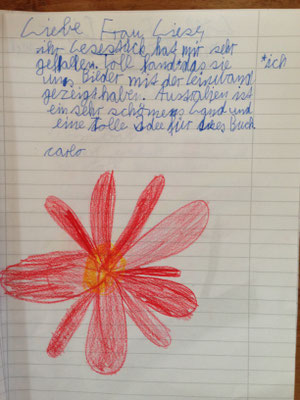 Liebe Frau Liesy
ihr Lesestück hat mir sehr
gefallen. Toll fand das sie
uns Bilder mit der leinwand *ich
gezeigt haben. Australien ist
ein sehr schönens Land und
eine tolle Idee für dies Buch
carlo